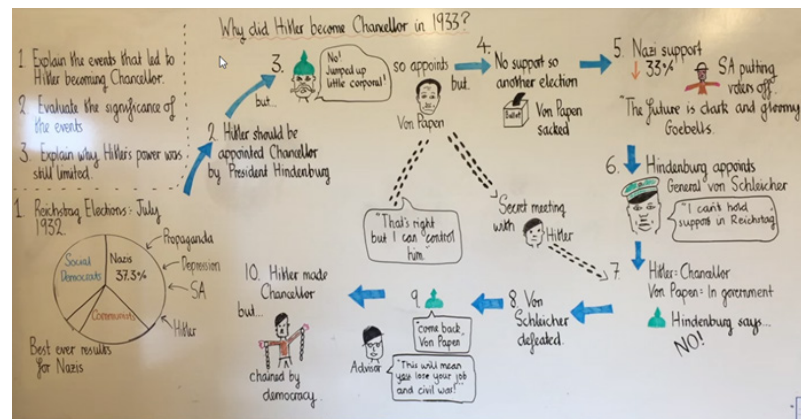 Why did Hitler become Chancellor in 1933?
1. Explain the events that led to
Hitler becoming Chancellor.
2. Evaluate the significance of
the events
3. Explain why Hitler's power was
still limited.
1. Reichstag Elections: July
1932.
Social
Democrats
Nazis
37.3%
Communists
Propaganda
Depression
SA
Hitler
Best ever results
for Nazis
2. Hitler should be
appointed Chancellor
by President Hindenburg
but...
3.
No!
Jumped up
little corporal!
so appoints
but..
Von Papen
"That's right
but I can "control
him."
4.
No support so
another election
Ballot
Von Papen
sacked
Secret meeting
with
Hitler
5. Nazi support
↓ 33%
SA putting
voters off.
"The future is dark and gloomy
Goebells.
6. Hindenburg appoints
General von Schleicher
"I can't hold
support in Reichstag
7.
Hitler = Chancellor
Von Papen = In government
Hindenburg says...
NO!
8. Von
Schleicher
defeated.
9.
"come back
Von Papen"
Advisor
"This will mean
you lose your job
and civil war!"
10. Hitler made
Chancellor
but...
chained by
democracy.